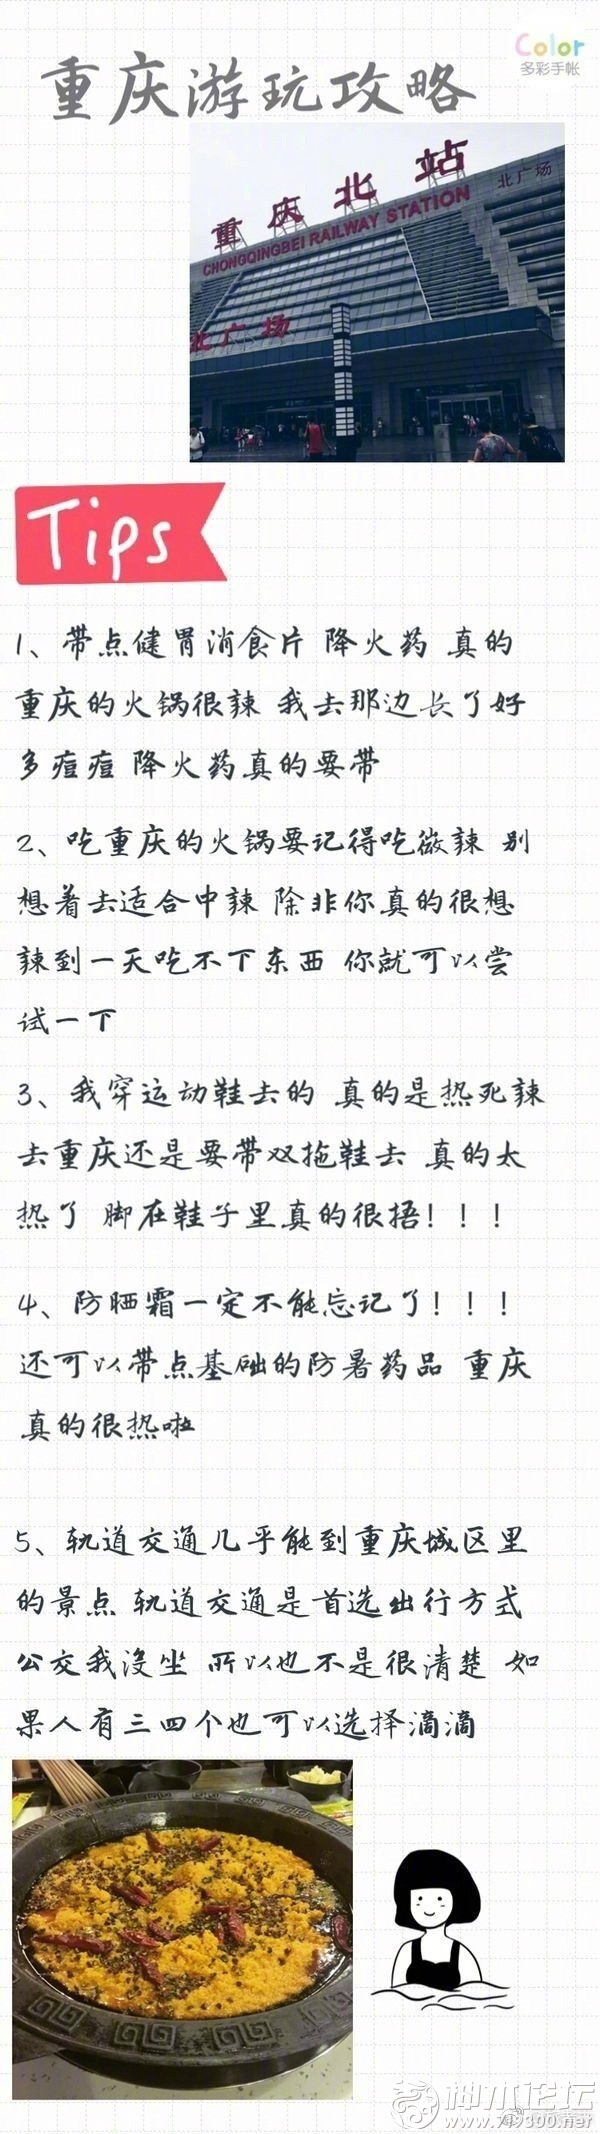 Color
多彩手帐
重庆游玩攻略
重庆北站
北广场
CHONGQINGBEI RAILWAY STATION
北广场
Tips
1、带点健胃消食片 降火药 真的
重庆的火锅很辣 我去那边长了好
多痘痘 降火药真的要带
2、吃重庆的火锅要记得吃微辣 别
想着去适合中辣 除非你真的很想
辣到一天吃不下东西 你就可以尝
试一下
3、我穿运动鞋去的 真的是热死辣
去重庆还是要带双拖鞋去 真的太
热了 脚在鞋子里真的很捂！！！
4、防晒霜一定不能忘记了！！！
还可以带点基础的防暑药品 重庆
真的很热啦
5、轨道交通几乎能到重庆城区里
的景点 轨道交通是首选出行方式
公交我没坐 所以也不是很清楚 如
果人有三四个也可以选择滴滴
神木论坛
www.719300.net